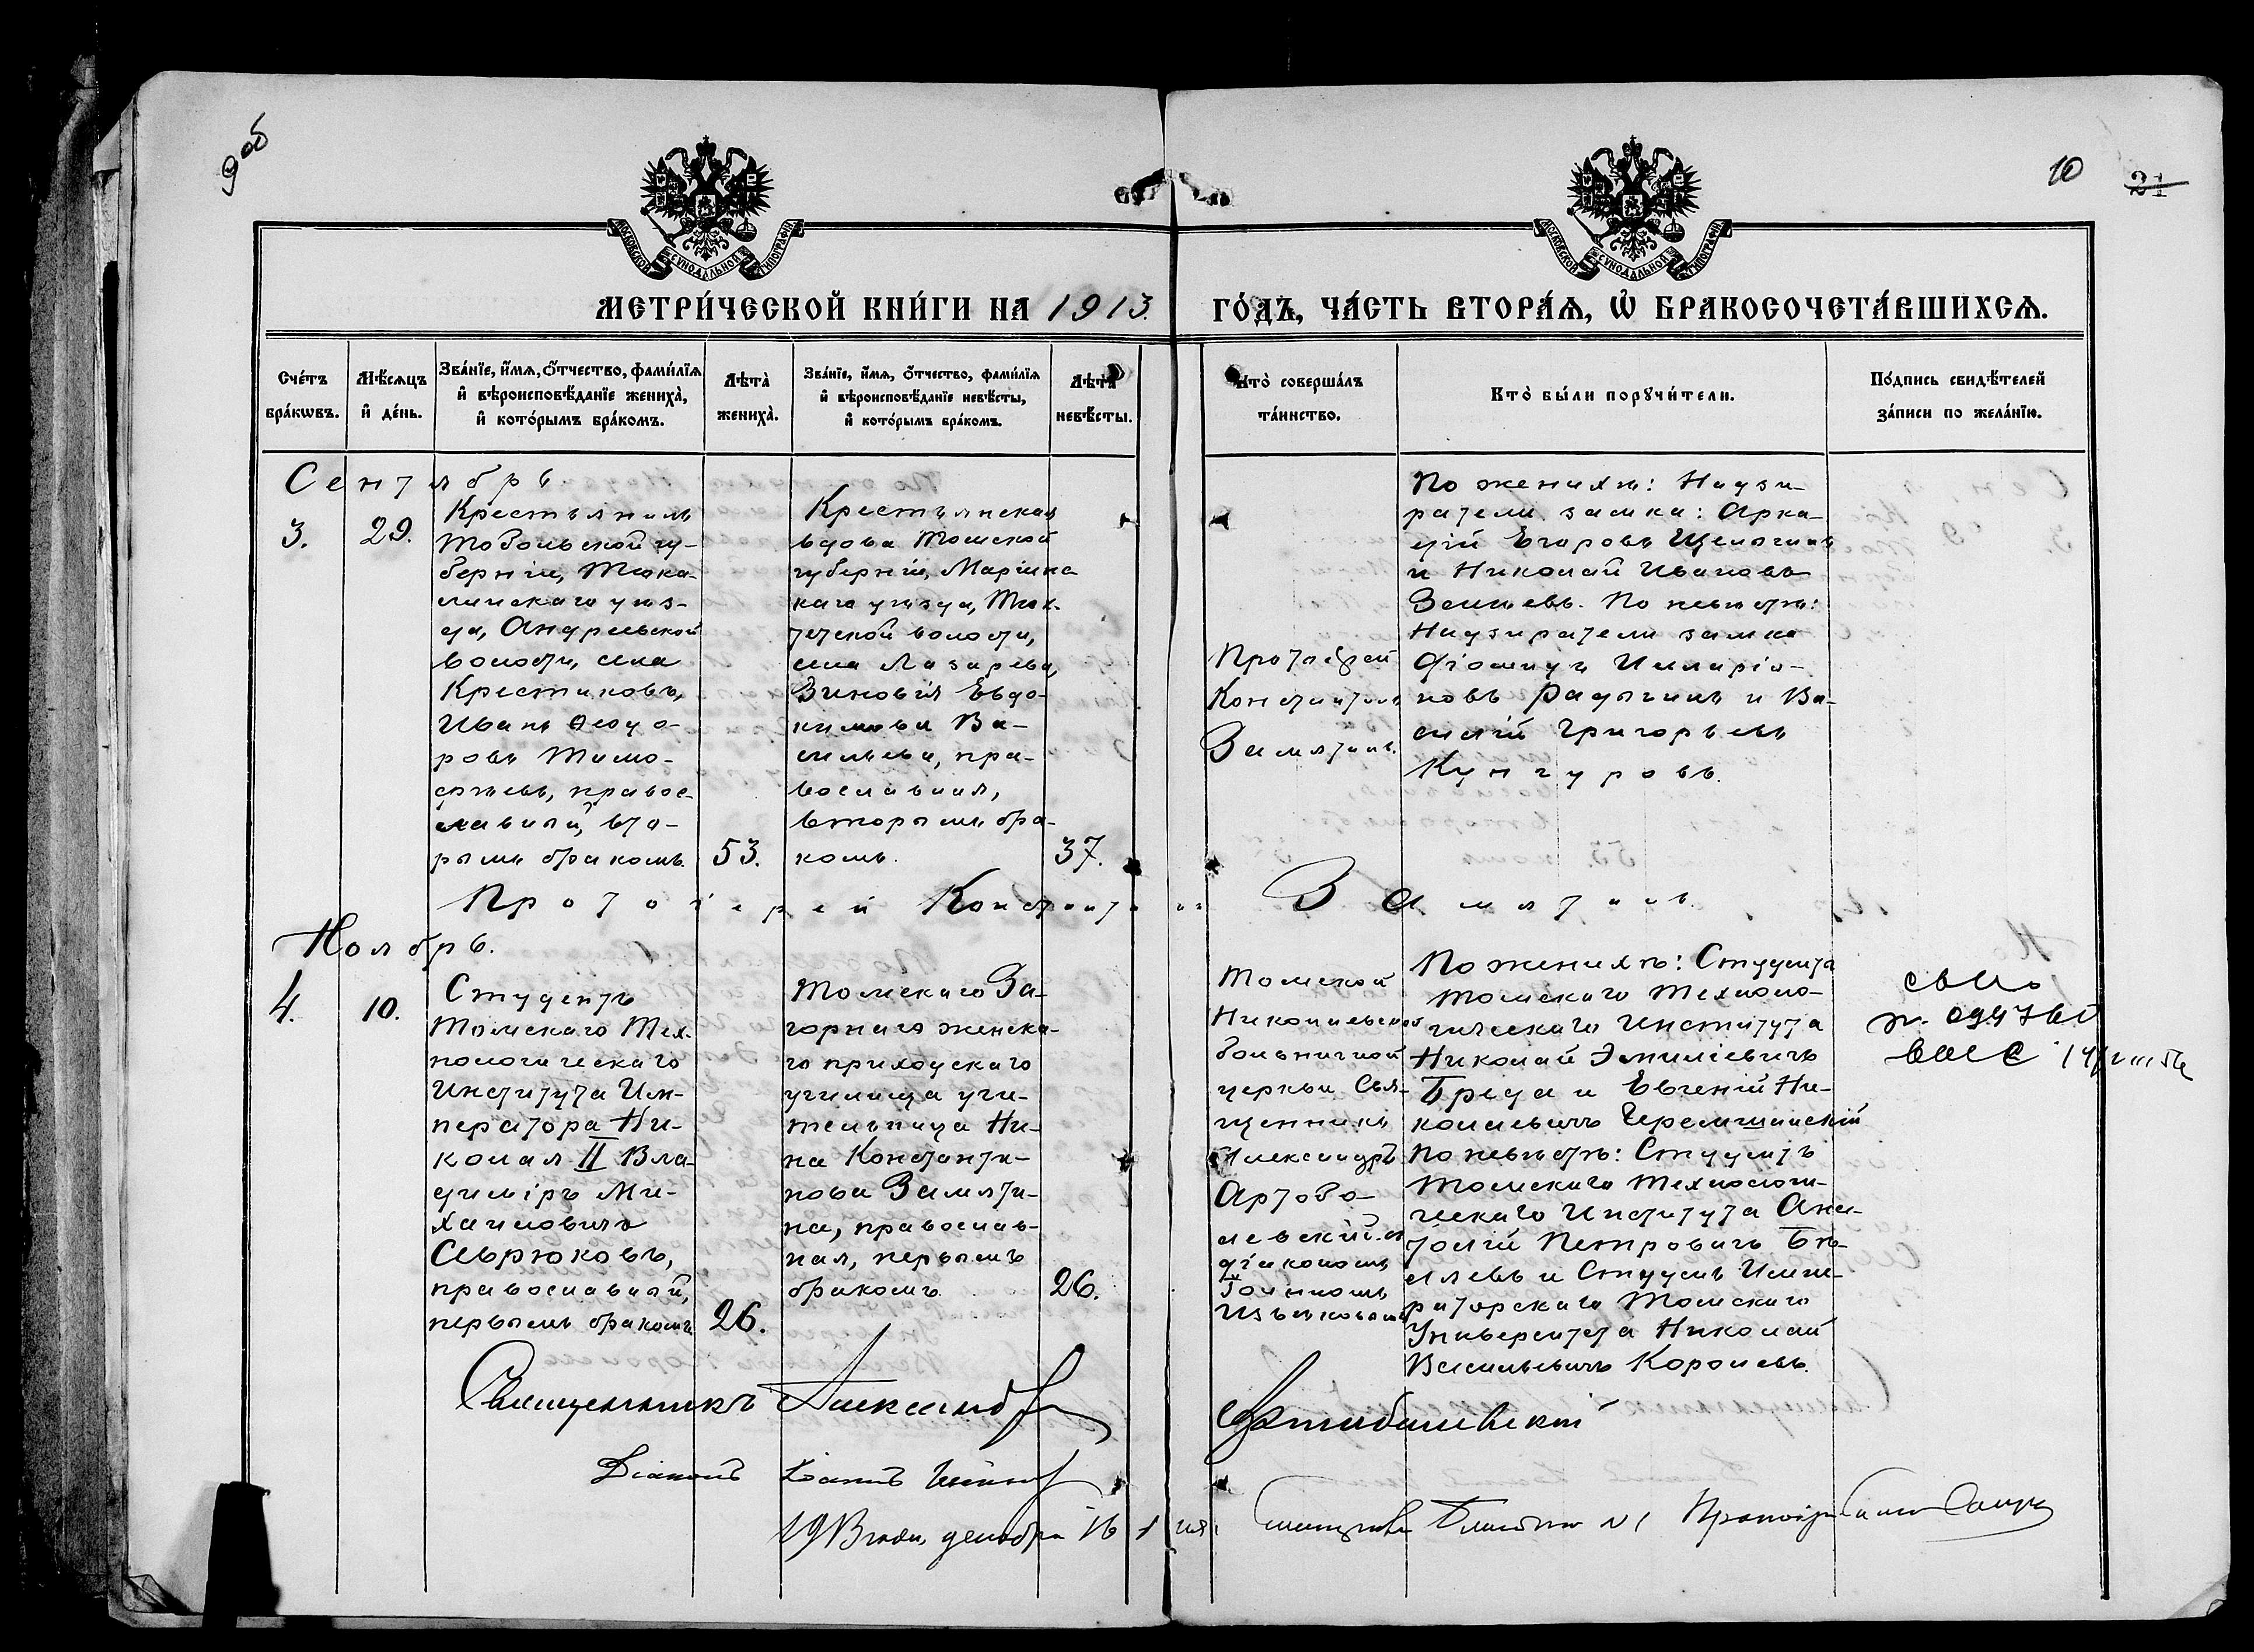 9 об
10
21
МОСКОВСКОЙ СѴНОДАЛЬНОЙ ТИПОГРАФІИ
МОСКОВСКОЙ СѴНОДАЛЬНОЙ ТИПОГРАФІИ
МЕТРИ́ЧЕСКОЙ КНИ́ГИ НА 1913 ГО́ДЪ, ЧА́СТЬ ВТОРА́Ѧ, Ѡ҆ БРАКОСОЧЕТА́ВШИХСѦ.
Сче́тъ
бра́кѡвъ.
Мѣ́сѧцъ
и҆ де́нь.
Зва́нїе, и҆́мѧ, ѻ҆́тчество, фами́лїѧ
и҆ вѣроисповѣ́данїе жениха̀,
и҆ кото́рымъ бра́комъ.
Лѣта̀
жениха̀.
Зва́нїе, и҆́мѧ, ѻ҆́тчество, фами́лїѧ
и҆ вѣроисповѣ́данїе невѣ́сты,
и҆ кото́рымъ бра́комъ.
Лѣта̀
невѣ́сты.
Кто̀ соверша́лъ
та́инство.
Кто̀ бы́ли порꙋчи́тели.
По́дпись свидѣ́телей
за́писи по жела́нїю.
Сентябрь
3.
29.
Крестьянинъ
Тобольской гу-
берніи, Тюка-
линскаго уѣз-
да, Андреевской
волости, села
Крестиковъ,
Иванъ Ѳеодо-
ровъ Тимо-
ѳеевъ, правос-
лавный, вто-
рымъ бракомъ.
53.
Крестьянская
вдова Томской
губерніи, Маріинс-
каго уѣзда, Тюх-
тетской волости,
села Лазарева,
Зиновія Евдо-
кимова Ва-
сильева, пра-
вославная,
вторымъ бра-
комъ.
37.
Протоіерей
Константинъ
Замятинъ.
По женихѣ: Надзи-
ратели замка: Арка-
дій Егоровъ Щелогинъ
и Николай Ивановъ
Зенцевъ. По невѣстѣ:
Надзиратели замка
Иларіо-
новъ Радыгинъ и Ва-
силій Григорьевъ
Кунгуровъ.
Протоіерей Константинъ Замятинъ.
Ноябрь.
4.
10.
Студентъ
Томскаго Тех-
нологическаго
Института Им-
ператора Ни-
колая II Вла-
диміръ Ми-
хаиловичъ
Сѣрюковъ,
православный,
первымъ бракомъ
26.
Томскаго За-
горнаго женска-
го приходскаго
училища учи-
тельница Ни-
на Константи-
нова Замяти-
на, православ-
ная, первымъ
бракомъ.
26.
Томской
Николаевской
больничной
церкви Свя-
щенникъ
Александръ
Артобо-
левскій съ
діакономъ
Іоанномъ
По женихѣ: Студента
Томскаго Техноло-
гическаго Института
Николай Эмиліевичъ
Бреда и Евгеній Ни-
колаевичъ Черемшанскій
По невѣстѣ: Студентъ
Томскаго Технологи-
ческаго Института Ана-
толій Петровичъ Бѣ-
ляевъ и Студентъ Импе-
раторскаго Томскаго
Университета Николай
Васильевичъ Королевъ.
Священникъ Александръ Артоболевскій
Діаконъ Іоаннъ
1913 года, декабря 16 дня